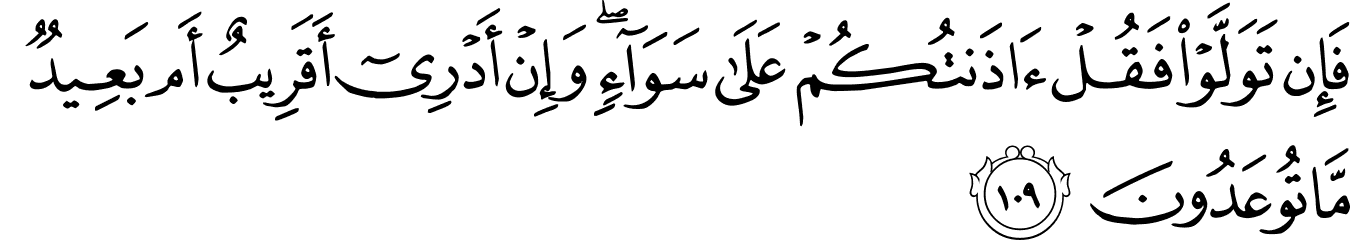 فَإِن تَوَلَّوْا۟ فَقُلْ ءَاذَنتُكُمْ عَلَىٰ سَوَآءٍ ۖ وَإِنْ أَدْرِىٓ أَقَرِيبٌ أَم بَعِيدٌ
مَّا تُوعَدُونَ ١٠٩